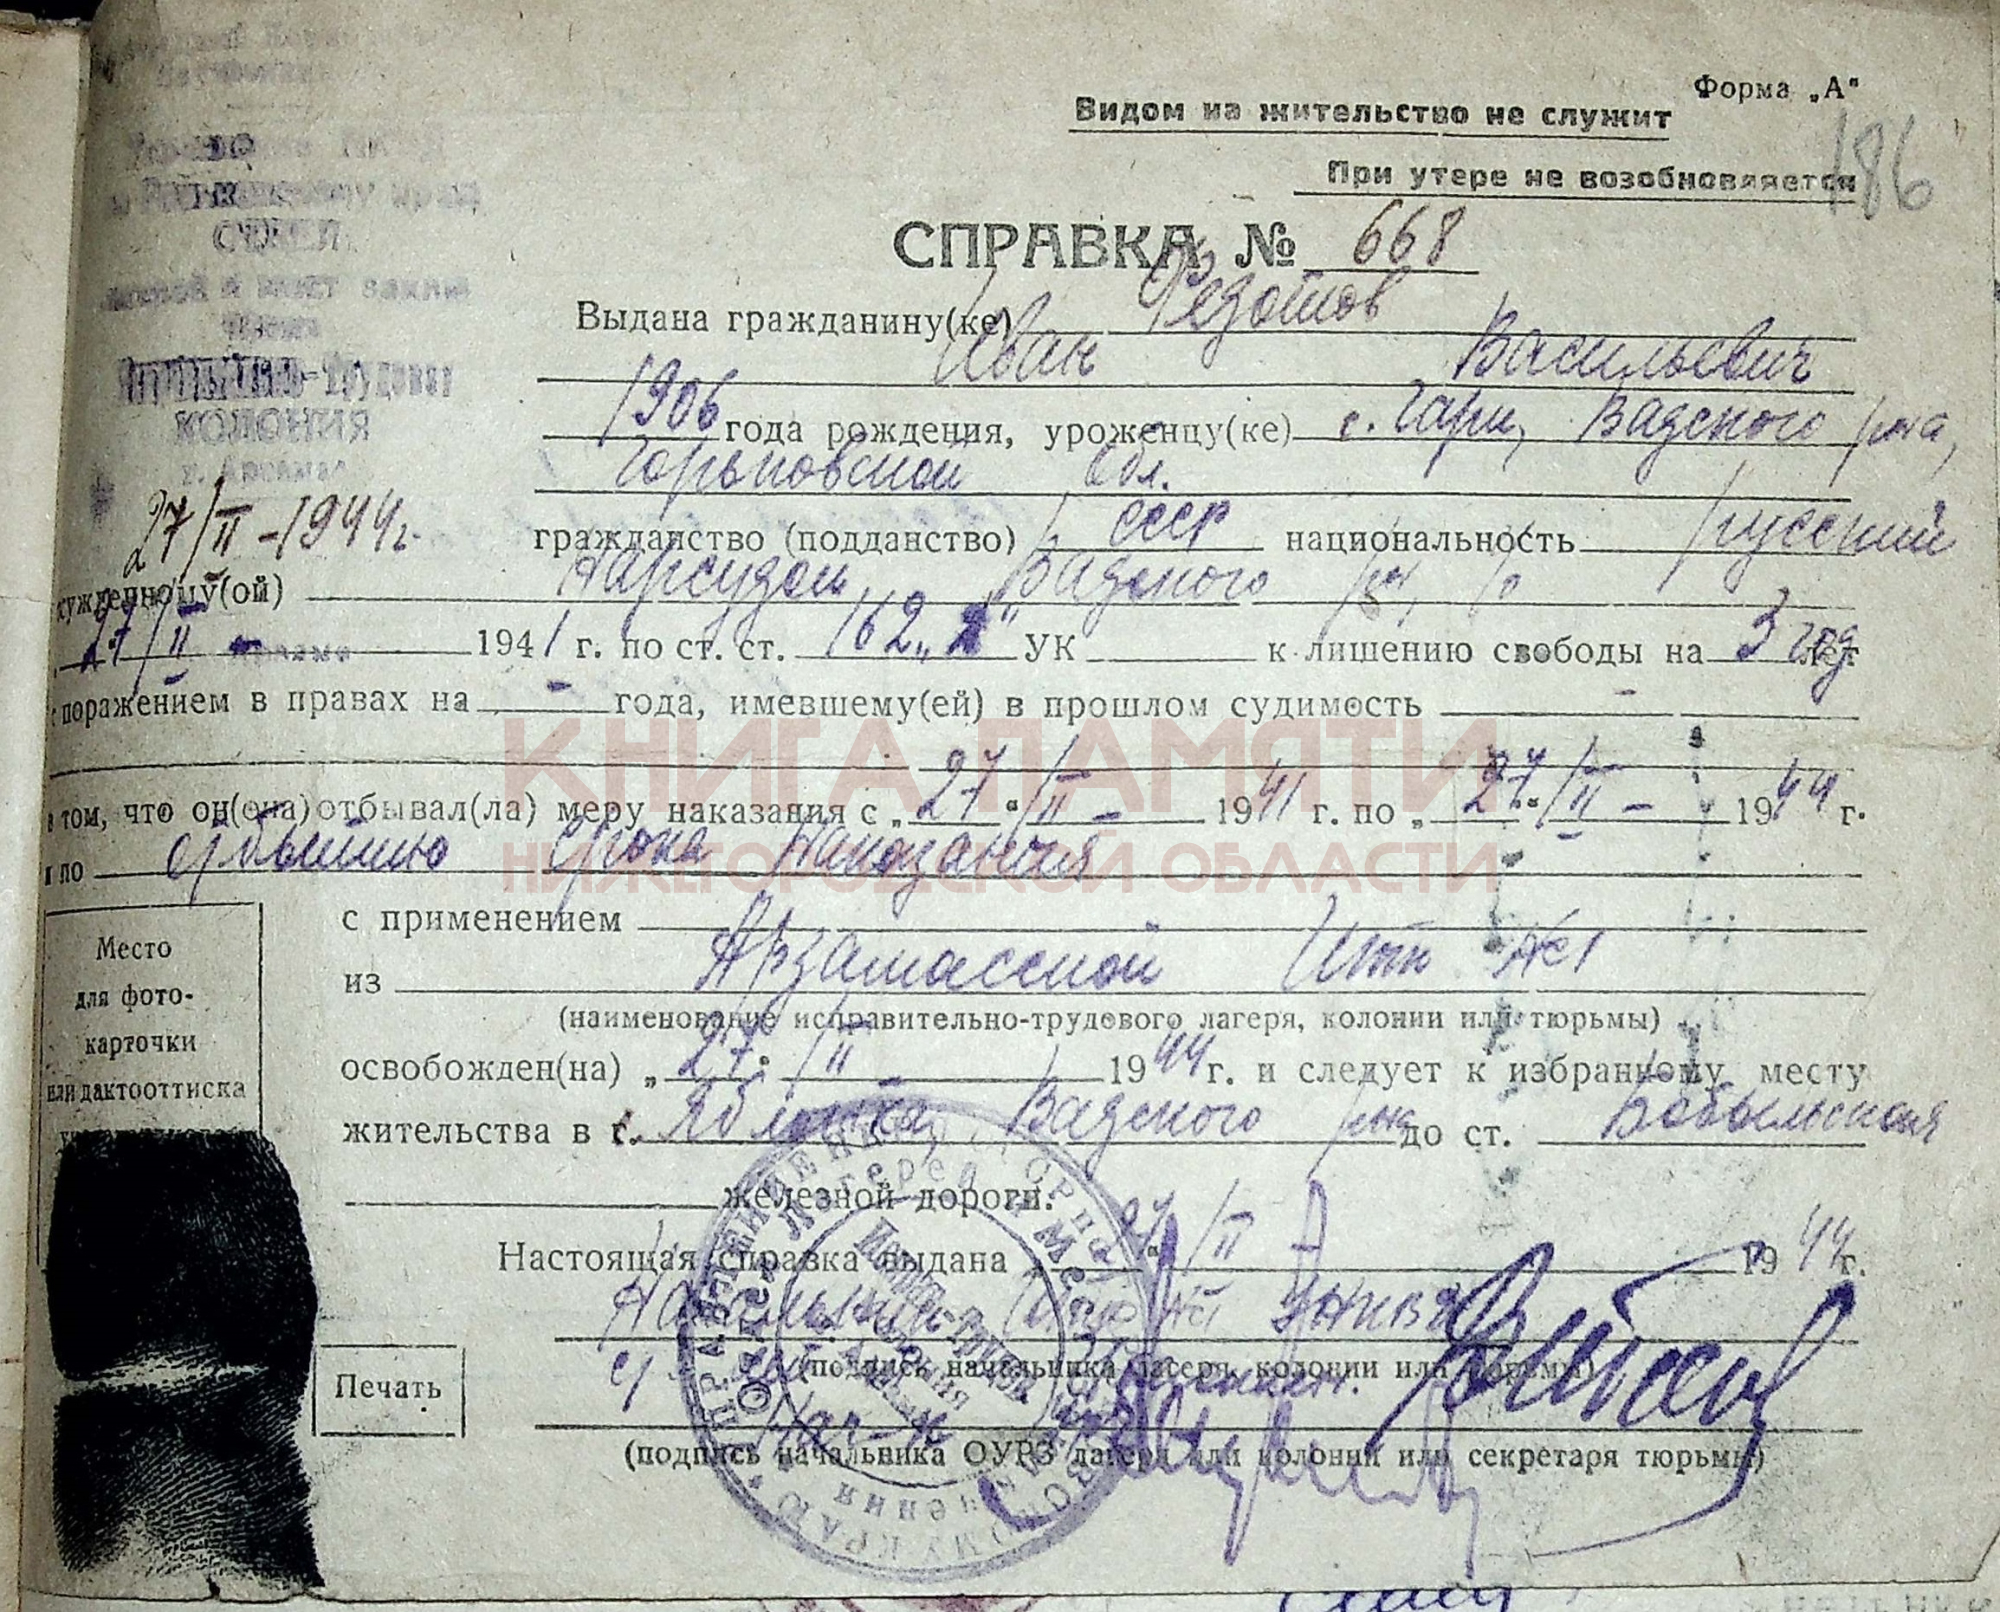 Форма „А"
Видом на жительство не служит
При утере не возобновляется
186
СПРАВКА № 668
Выдана гражданину(ке)
Иван Васильевич
1906 года рождения, уроженцу(ке) с. Гари, Вадского р-на,
Горьковской обл.
КОЛОНИЯ
27/II-1944г.
гражданство (подданство) СССР национальность русский
сужденному(ой) Нарсудом Вадского р-на
27/II - 1941 г. по ст. ст. 162 УК к лишению свободы на 3 года лет
с поражением в правах на - года, имевшему(ей) в прошлом судимость -
в том, что он(она) отбывал(ла) меру наказания с „27" /II - 1941 г. по „27" /II - 1944 г.
и по отбытию срока наказания
с применением
из Арзамасской ИТК №1
(наименование исправительно-трудового лагеря, колонии или тюрьмы)
освобожден(на) „27" /II - 1944 г. и следует к избранному месту
жительства в с. Яблонка, Вадского р-на до ст. Бобыльская
железной дороги.
Настоящая справка выдана „27" /II 1944 г.
Начальник ИТК №1 УНКВД
(подпись начальника лагеря, колонии или тюрьмы)
(подпись начальника ОУРЗ лагеря или колонии или секретаря тюрьмы)
Место
для фото-
карточки
или дактооттиска
Печать
КНИГА ПАМЯТИ
НИЖЕГОРОДСКОЙ ОБЛАСТИ